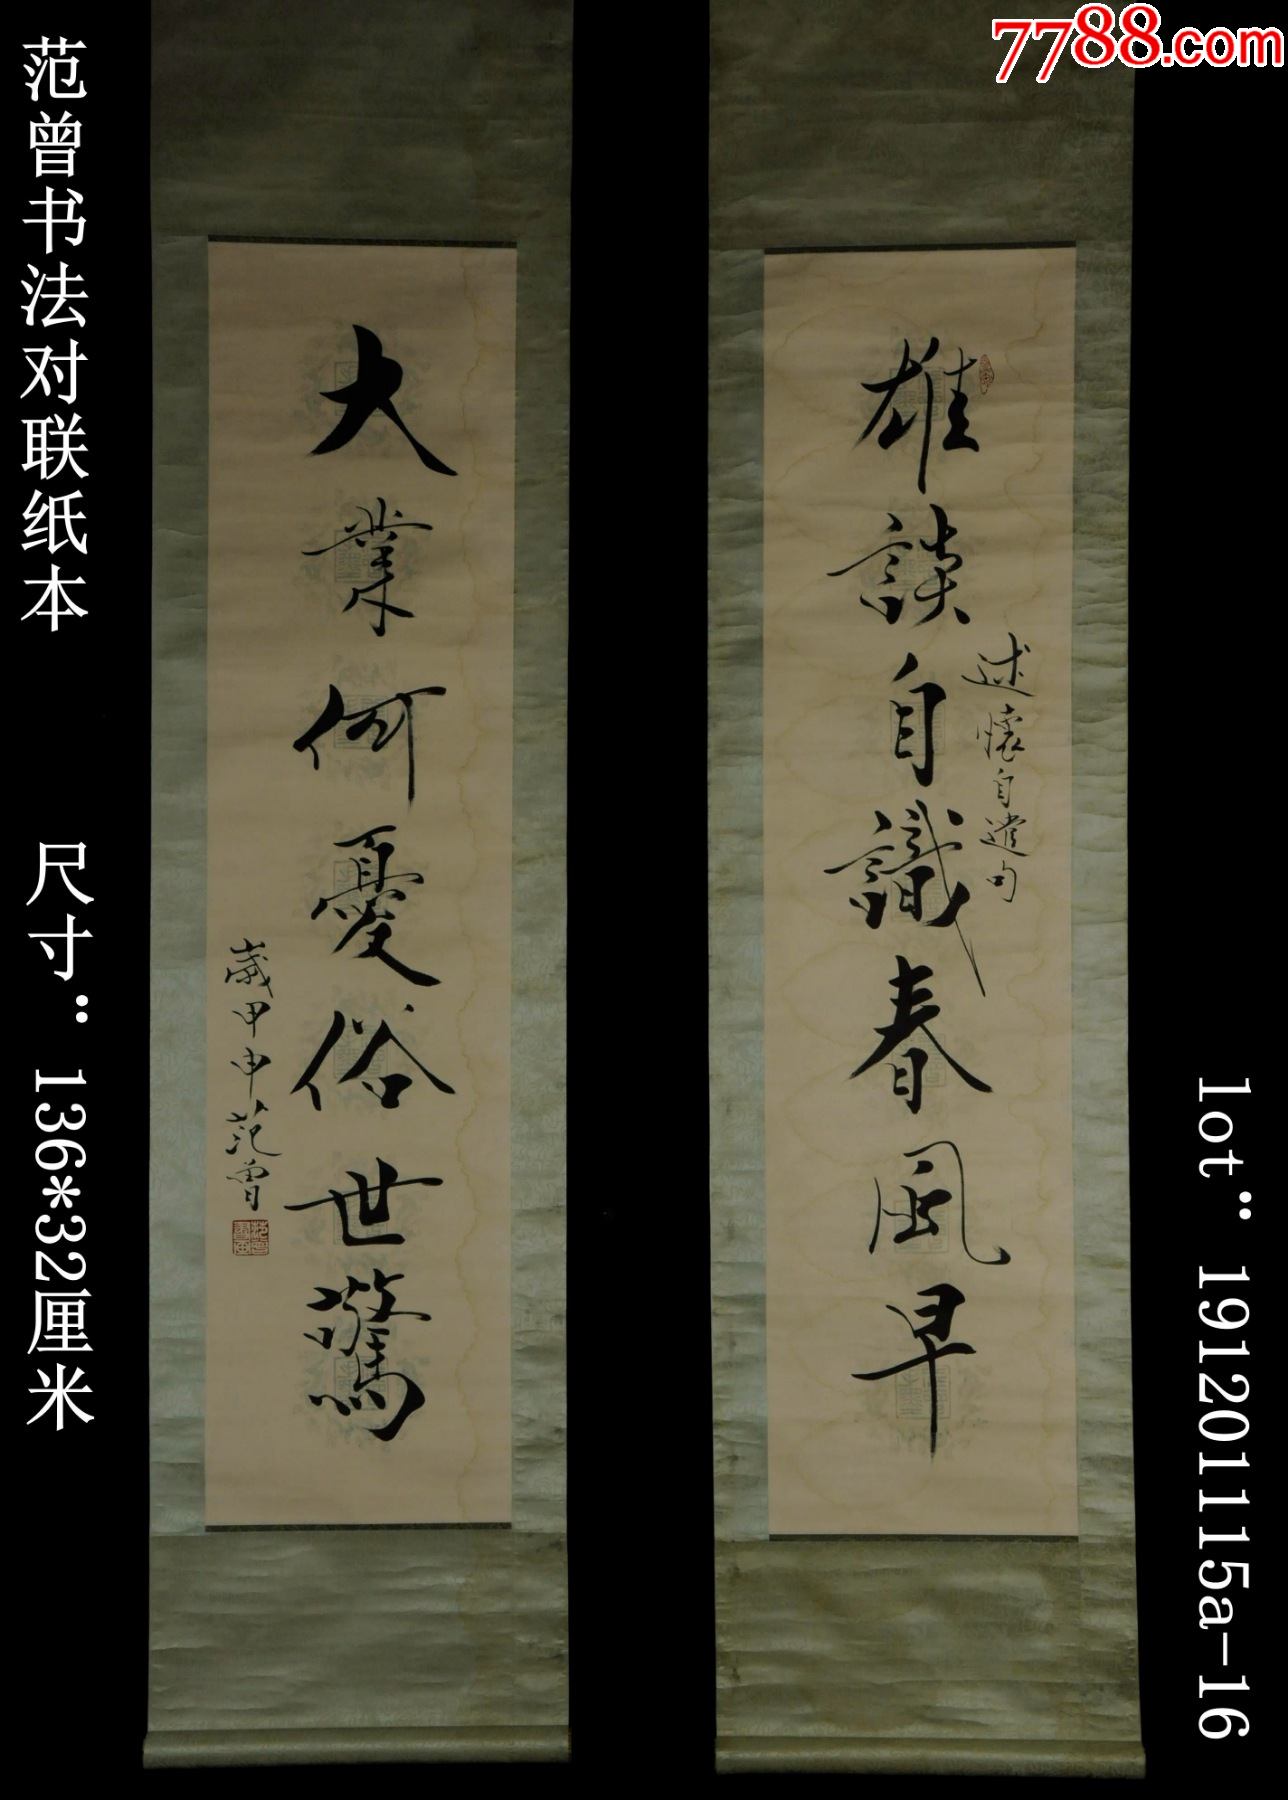 7788.com
范曾书法对联纸本
尺寸：136*32厘米
雄談自識春風早
述懷自遣句
大業何憂俗世驚
歲甲申范曾
lot：191201115a-16